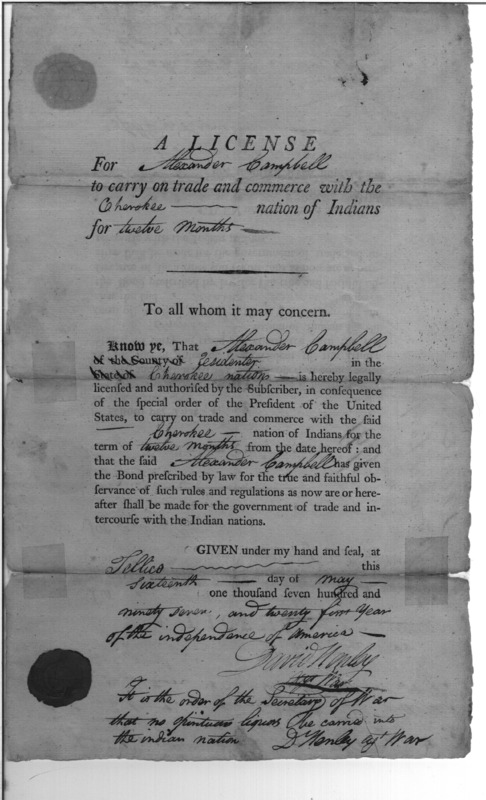 A LICENSE
For Alexander Campbell
to carry on trade and commerce with the
Cherokee nation of Indians
for twelve months
To all whom it may concern.
Know ye, That Alexander Campbell
of the County of residenter in the
State of Cherokee nation is hereby legally
licensed and authorised by the Subscriber, in consequence
of the special order of the President of the United
States, to carry on trade and commerce with the said
Cherokee nation of Indians for the
term of twelve months from the date hereof: and
that the said Alexander Campbell has given
the Bond prescribed by law for the true and faithful ob-
servance of such rules and regulations as now are or here-
after shall be made for the government of trade and in-
tercourse with the Indian nations.
GIVEN under my hand and seal, at
Tellico this
sixteenth day of may
one thousand seven hundred and
ninety seven, and twenty first Year
of the independence of America
David Henley
It is the order of the Secretary of War
that no spirituous liquors be carried into
the indian nation
D Henley agt War